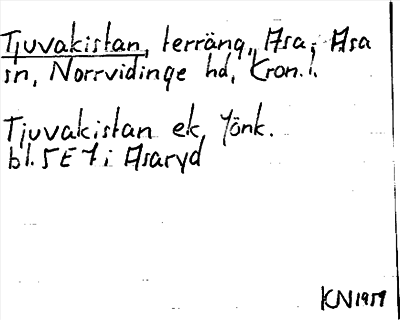 Tjuvakistan, terräng, Asa, Asa
sn, Norrvidinge hd, Kron. l.
Tjuvakistan ek. Jönk.
bl. 5 E 7 i Asaryd